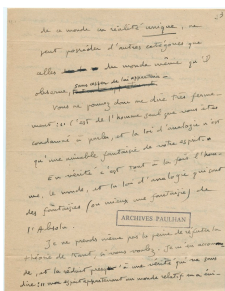 de ce monde en réalité unique, ne
peut posséder d'autres catégories que
celles du monde même qu'il
observe,
Vous ne pouvez donc me dire très ferme-
ment : « c'est de l'homme seul que vous êtes
condamné à parler, et la loi d'analogie n'est
qu'une aimable fantaisie de notre esprit. »
En vérité c'est tout à la fois l'hom-
me, le monde, et la loi d'analogie qui sont
des fantaisies (ou mieux une fantaisie) de
l'Absolu.
ARCHIVES PAULHAN
Je ne prends même pas la peine de réfuter la
théorie de Kant, si vous voulez. Je m'en
de, et la réduit à une vérité qui ne sau
dire : « nous appartenant au monde relatif